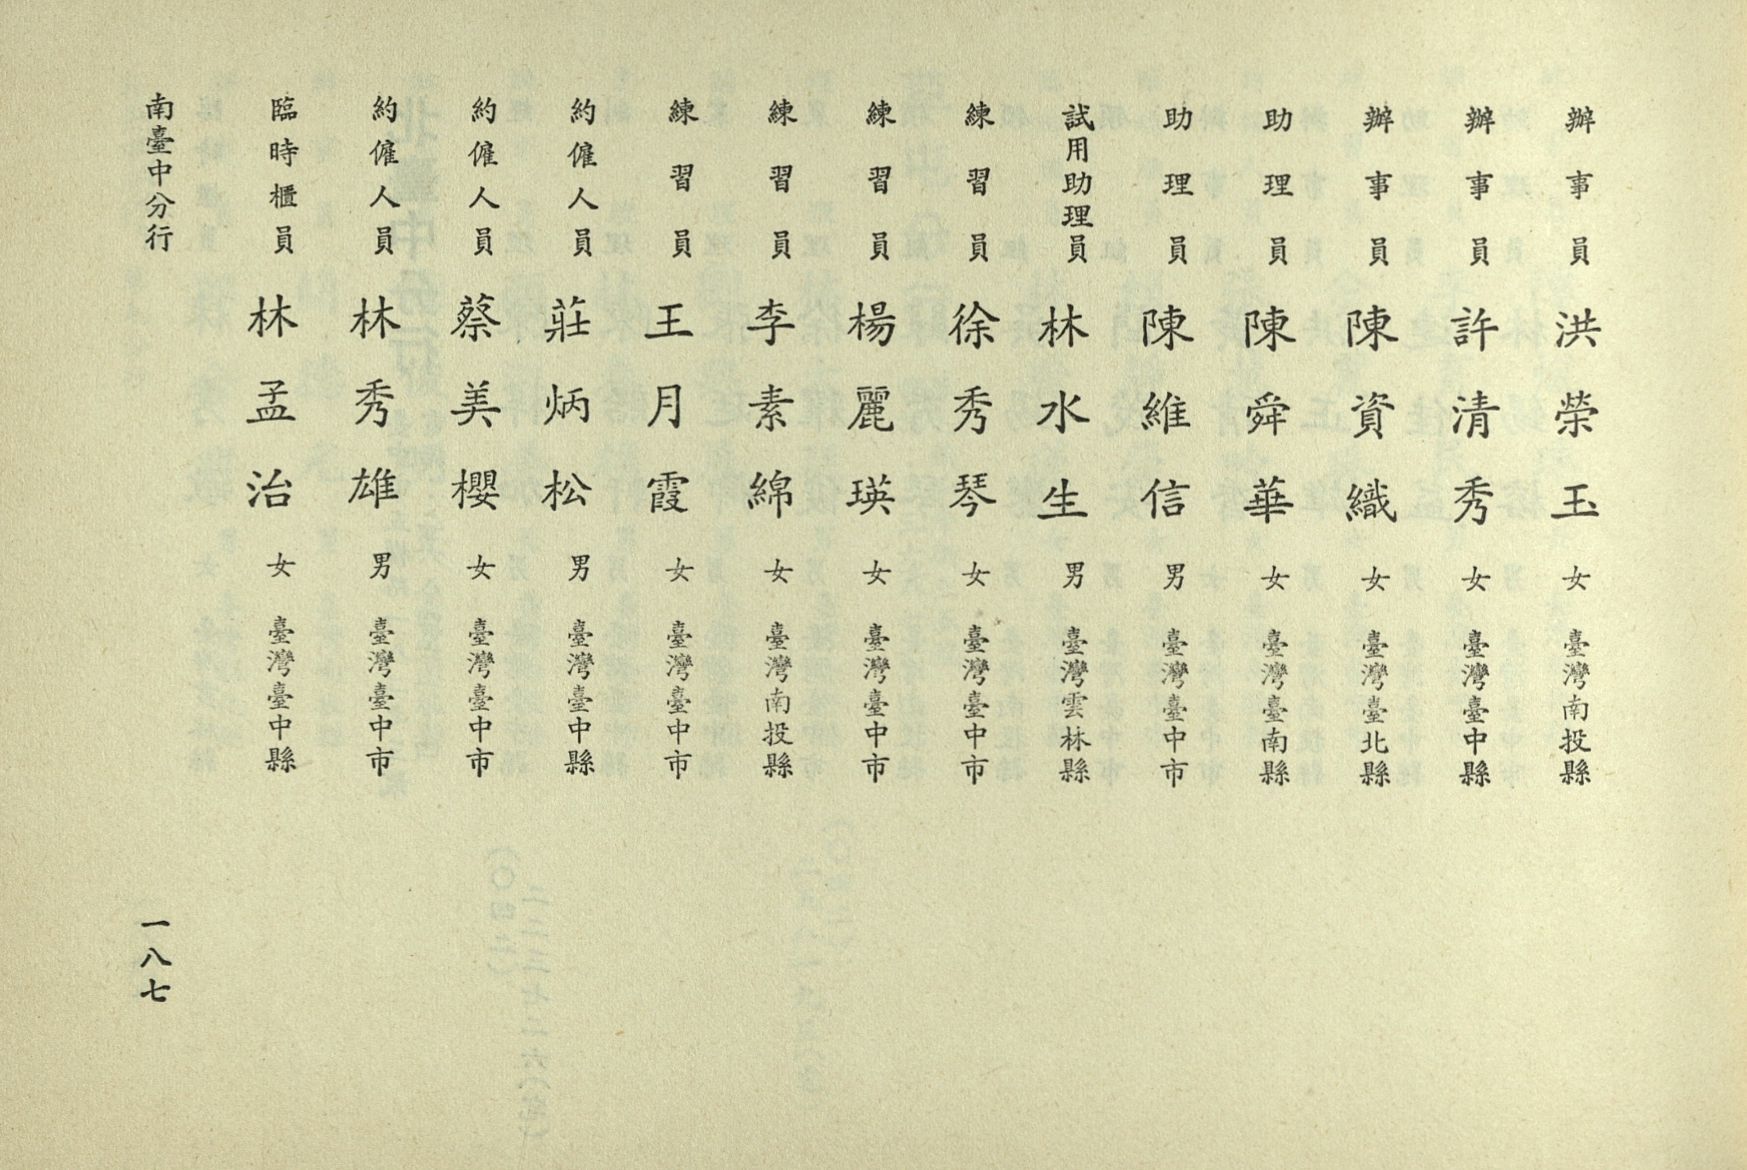 辦事員 洪榮玉 女 臺灣南投縣
辦事員 許清秀 女 臺灣臺中縣
辦事員 陳資織 女 臺灣臺北縣
助理員 陳舜華 女 臺灣臺南縣
助理員 陳維信 男 臺灣臺中市
試用助理員 林水生 男 臺灣雲林縣
練習員 徐秀琴 女 臺灣臺中市
練習員 楊麗瑛 女 臺灣臺中市
練習員 李素綿 女 臺灣南投縣
練習員 王月霞 女 臺灣臺中市
約僱人員 莊炳松 男 臺灣臺中縣
約僱人員 蔡美櫻 女 臺灣臺中市
約僱人員 林秀雄 男 臺灣臺中市
臨時櫃員 林孟治 女 臺灣臺中縣
南臺中分行 一八七